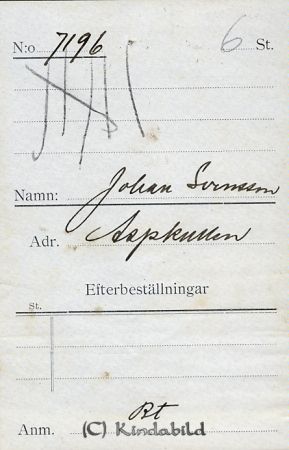 N:o 7196 6 St.
Namn: Johan Svensson
Adr. Aspkullen
Efterbeställningar
St.
Bt
Anm.
(C) Kindabild